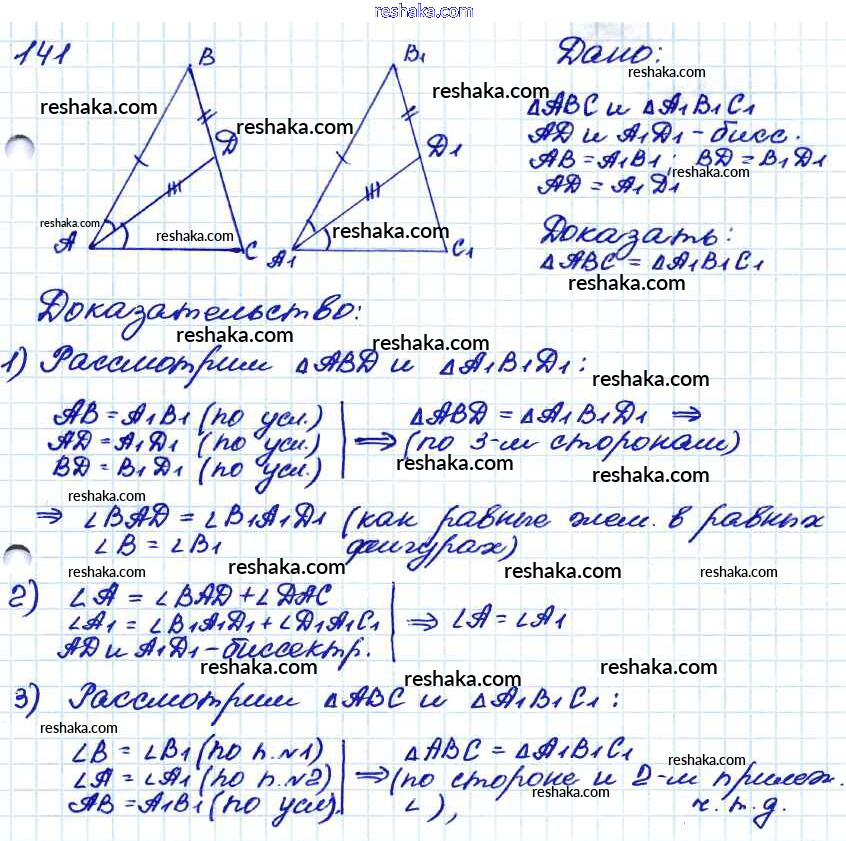 reshaka.com
141
B
B₁
Дано:
reshaka.com
reshaka.com
reshaka.com
reshaka.com
ΔABC и ΔA₁B₁C₁
Д
Д₁
AD и A₁D₁ - бисс.
AB = A₁B₁; BD = B₁D₁
reshaka.com
AD = A₁D₁
reshaka.com
reshaka.com
reshaka.com
A
C
A₁
C₁
Доказать:
ΔABC = ΔA₁B₁C₁
reshaka.com
Доказательство:
reshaka.com
reshaka.com
1) Рассмотрим ΔABD и ΔA₁B₁D₁:
reshaka.com
AB = A₁B₁ (по усл.)
AD = A₁D₁ (по усл.)
BD = B₁D₁ (по усл.)
⇒ ΔABD = ΔA₁B₁D₁ ⇒
(по 3-м сторонам)
reshaka.com
reshaka.com
reshaka.com
⇒ ∠BAD = ∠B₁A₁D₁ (как равные элем. в равных
∠B = ∠B₁ фигурах)
reshaka.com
reshaka.com
reshaka.com
reshaka.com
2) ∠A = ∠BAD + ∠DAC
∠A₁ = ∠B₁A₁D₁ + ∠D₁A₁C₁
AD и A₁D₁ - биссектр.
⇒ ∠A = ∠A₁
reshaka.com
reshaka.com
reshaka.com
3) Рассмотрим ΔABC и ΔA₁B₁C₁:
reshaka.com
∠B = ∠B₁ (по п.№1)
∠A = ∠A₁ (по п.№2)
AB = A₁B₁ (по усл.)
⇒ ΔABC = ΔA₁B₁C₁
(по стороне и 2-м прилеж.
∠), ч.т.д.
reshaka.com
reshaka.com
reshaka.com
reshaka.com